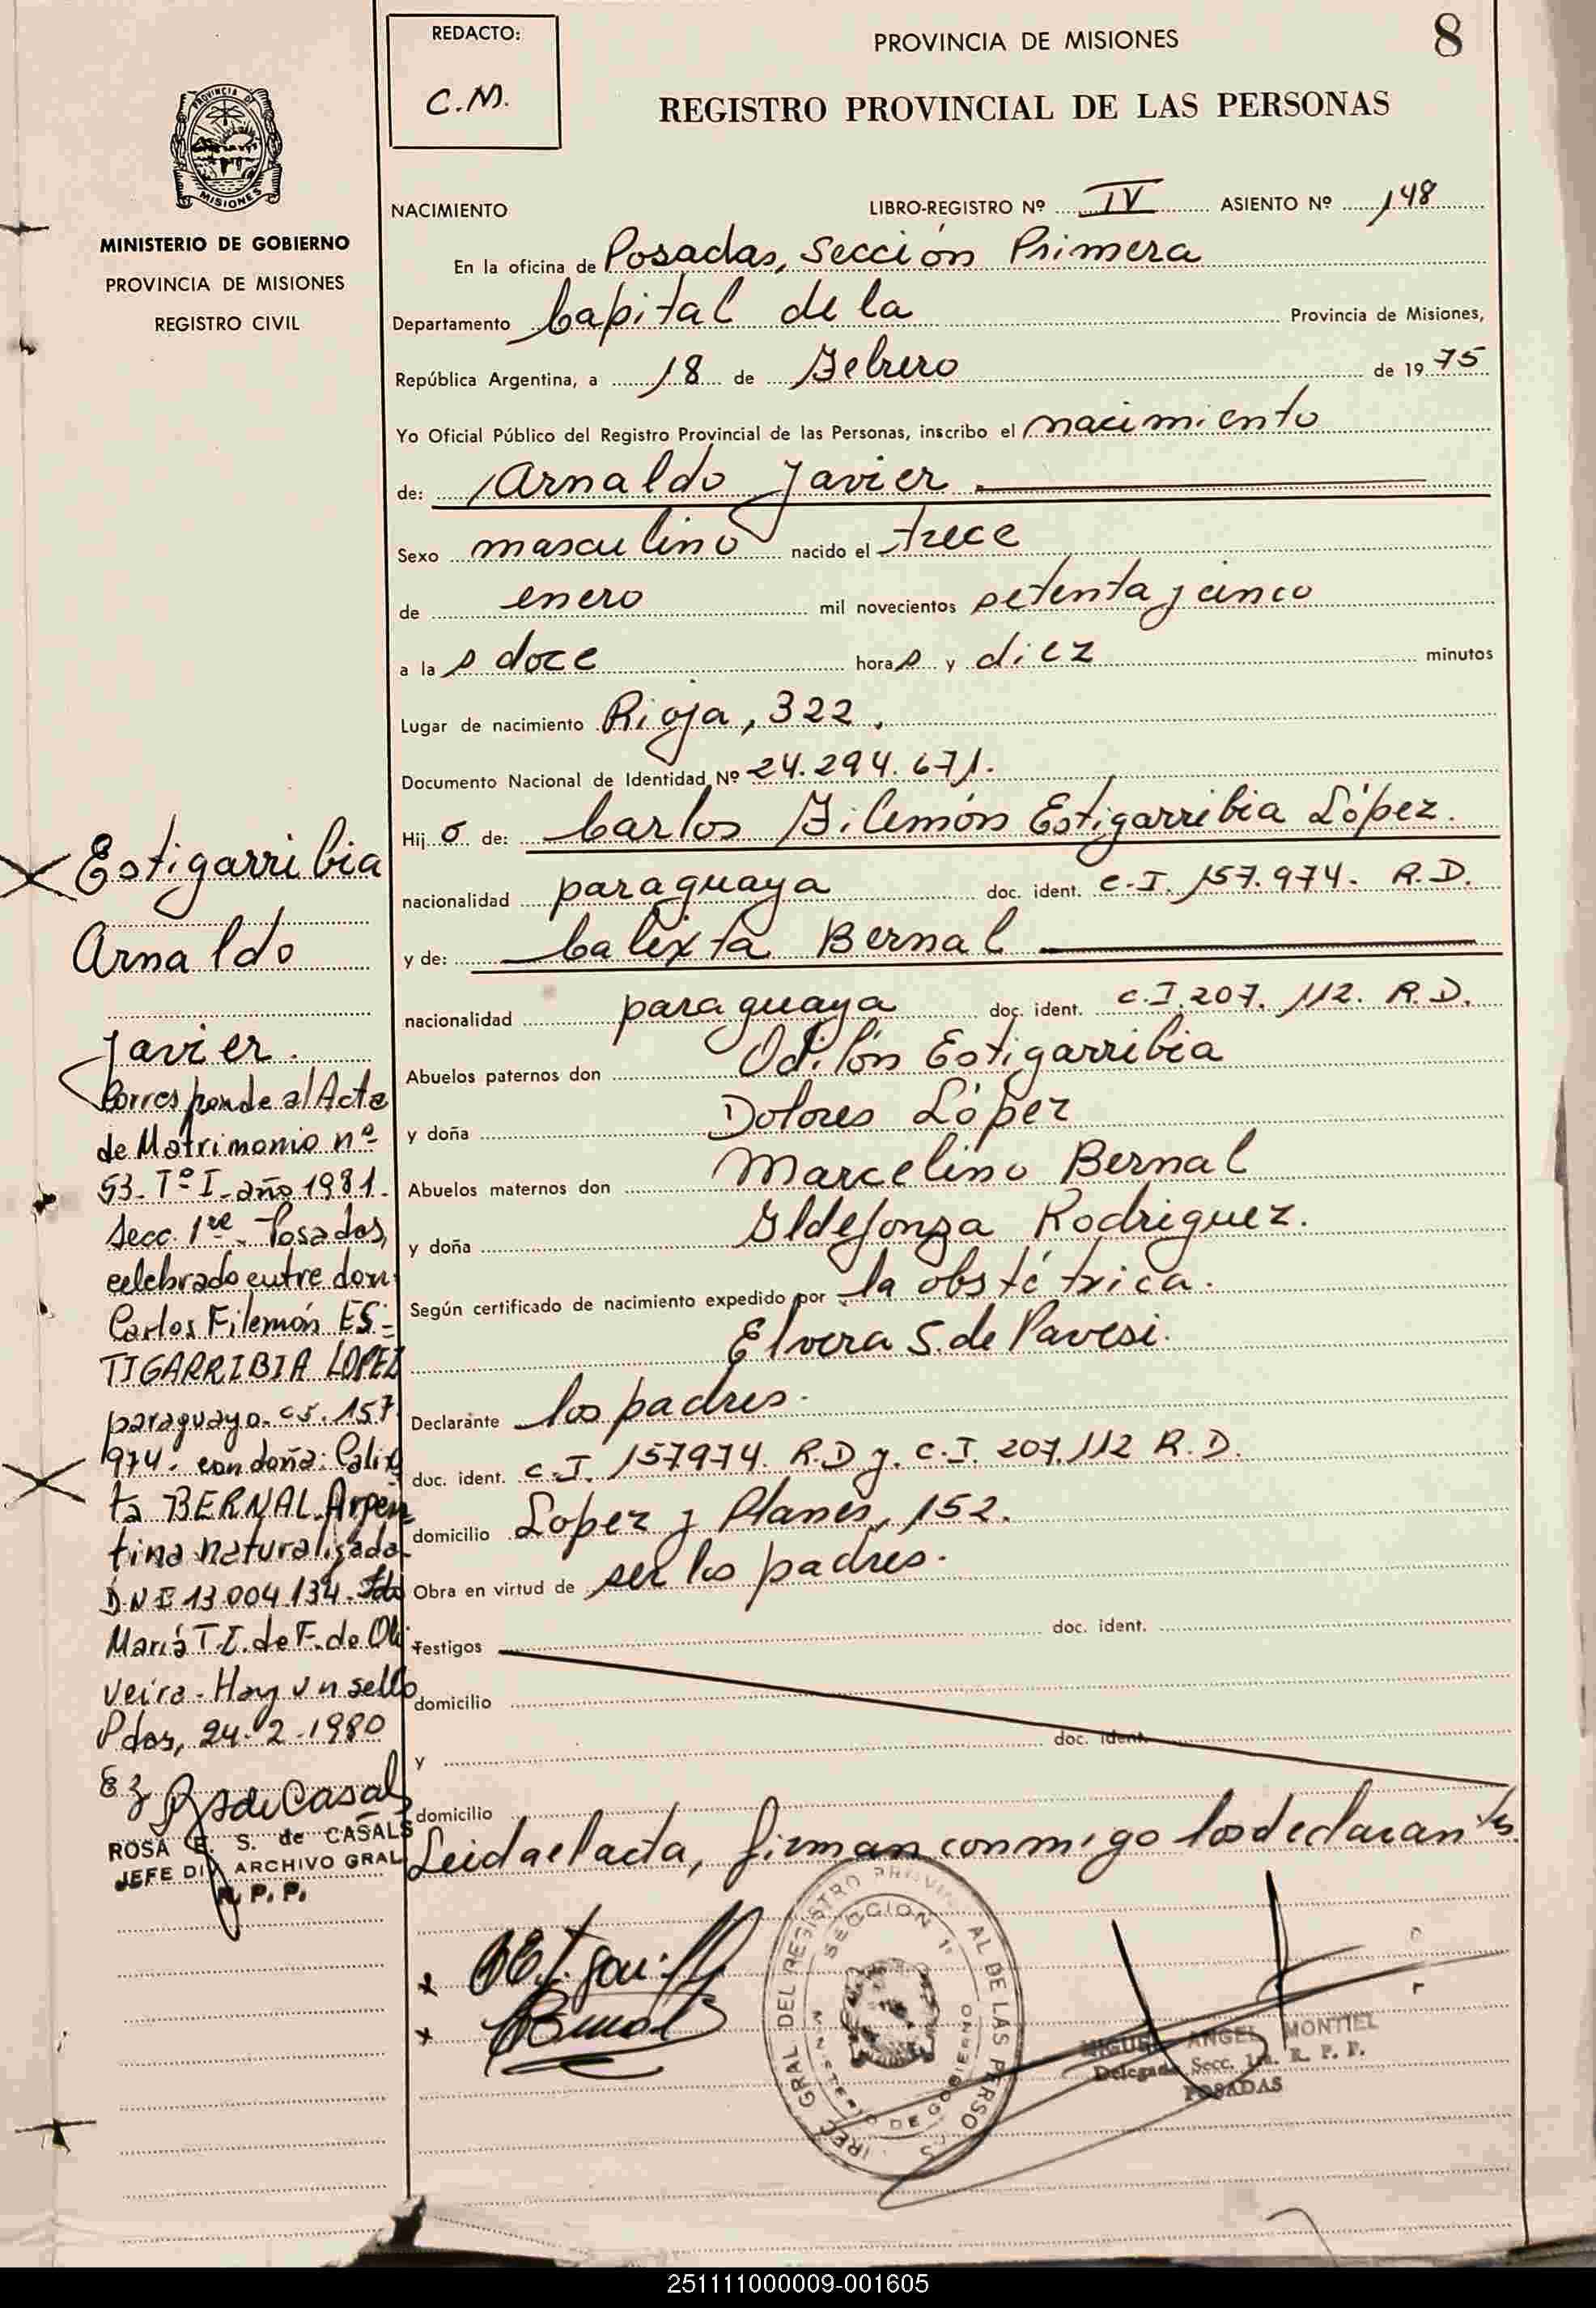 REDACTO:
C.M.
PROVINCIA DE MISIONES
8
REGISTRO PROVINCIAL DE LAS PERSONAS
PROVINCIA DE
MISIONES
MINISTERIO DE GOBIERNO
PROVINCIA DE MISIONES
REGISTRO CIVIL
NACIMIENTO
LIBRO-REGISTRO Nº IV ASIENTO Nº 148
En la oficina de Posadas, Sección Primera
Departamento Capital de la Provincia de Misiones,
República Argentina, a 18 de Febrero de 1975
Yo Oficial Público del Registro Provincial de las Personas, inscribo el nacimiento
de: Arnaldo Javier
Sexo masculino nacido el trece
de enero mil novecientos setenta y cinco
a la s doce hora s y diez minutos
Lugar de nacimiento Rioja, 322.
Documento Nacional de Identidad Nº 24.294.671.
Hij o de: Carlos Filemón Estigarribia López.
nacionalidad paraguaya doc. ident. C.I. 157.974. R.D.
y de: Calixta Bernal
nacionalidad paraguaya doc. ident. C.I. 207.112. R.D.
Abuelos paternos don Odilón Estigarribia
y doña Dolores López
Abuelos maternos don Marcelino Bernal
y doña Ildefonza Rodriguez.
Según certificado de nacimiento expedido por la obstétrica.
Elvera S. de Pavesi.
Declarante los padres.
doc. ident. C.I. 157974. R.D y. C.I. 207.112 R.D.
domicilio Lopez y Planes, 152.
Obra en virtud de ser los padres.
Testigos doc. ident.
domicilio
y doc. ident.
domicilio
Leida el acta, firman conmigo los declarantes.
Estigarribia
Arnaldo
Javier.
Corresponde al Acta
de Matrimonio nº
53. Tº I. año 1981.
Secc. 1re. Posadas,
celebrado entre don
Carlos Filemón ES-
TIGARRIBIA LOPEZ
paraguayo. 157
974. con doña: Calix
ta BERNAL. Argen
tina naturalizada
D.N.I 13.004.134. Fdo
María T.I. de F. de Oli
veira. Hay un sello
Pdas, 24.2.1980
ROSA E. S. de CASALS
JEFE DIV ARCHIVO GRAL
R. P. P.
Bernal
DIREC GRAL DEL REGISTRO PROVINCIAL DE LAS PERSONAS
SECCION 1ª
MINISTERIO DE GOBIERNO
MIGUEL ANGEL MONTIEL
Delegado Secc. 1ra. R. P. P.
POSADAS
251111000009-001605